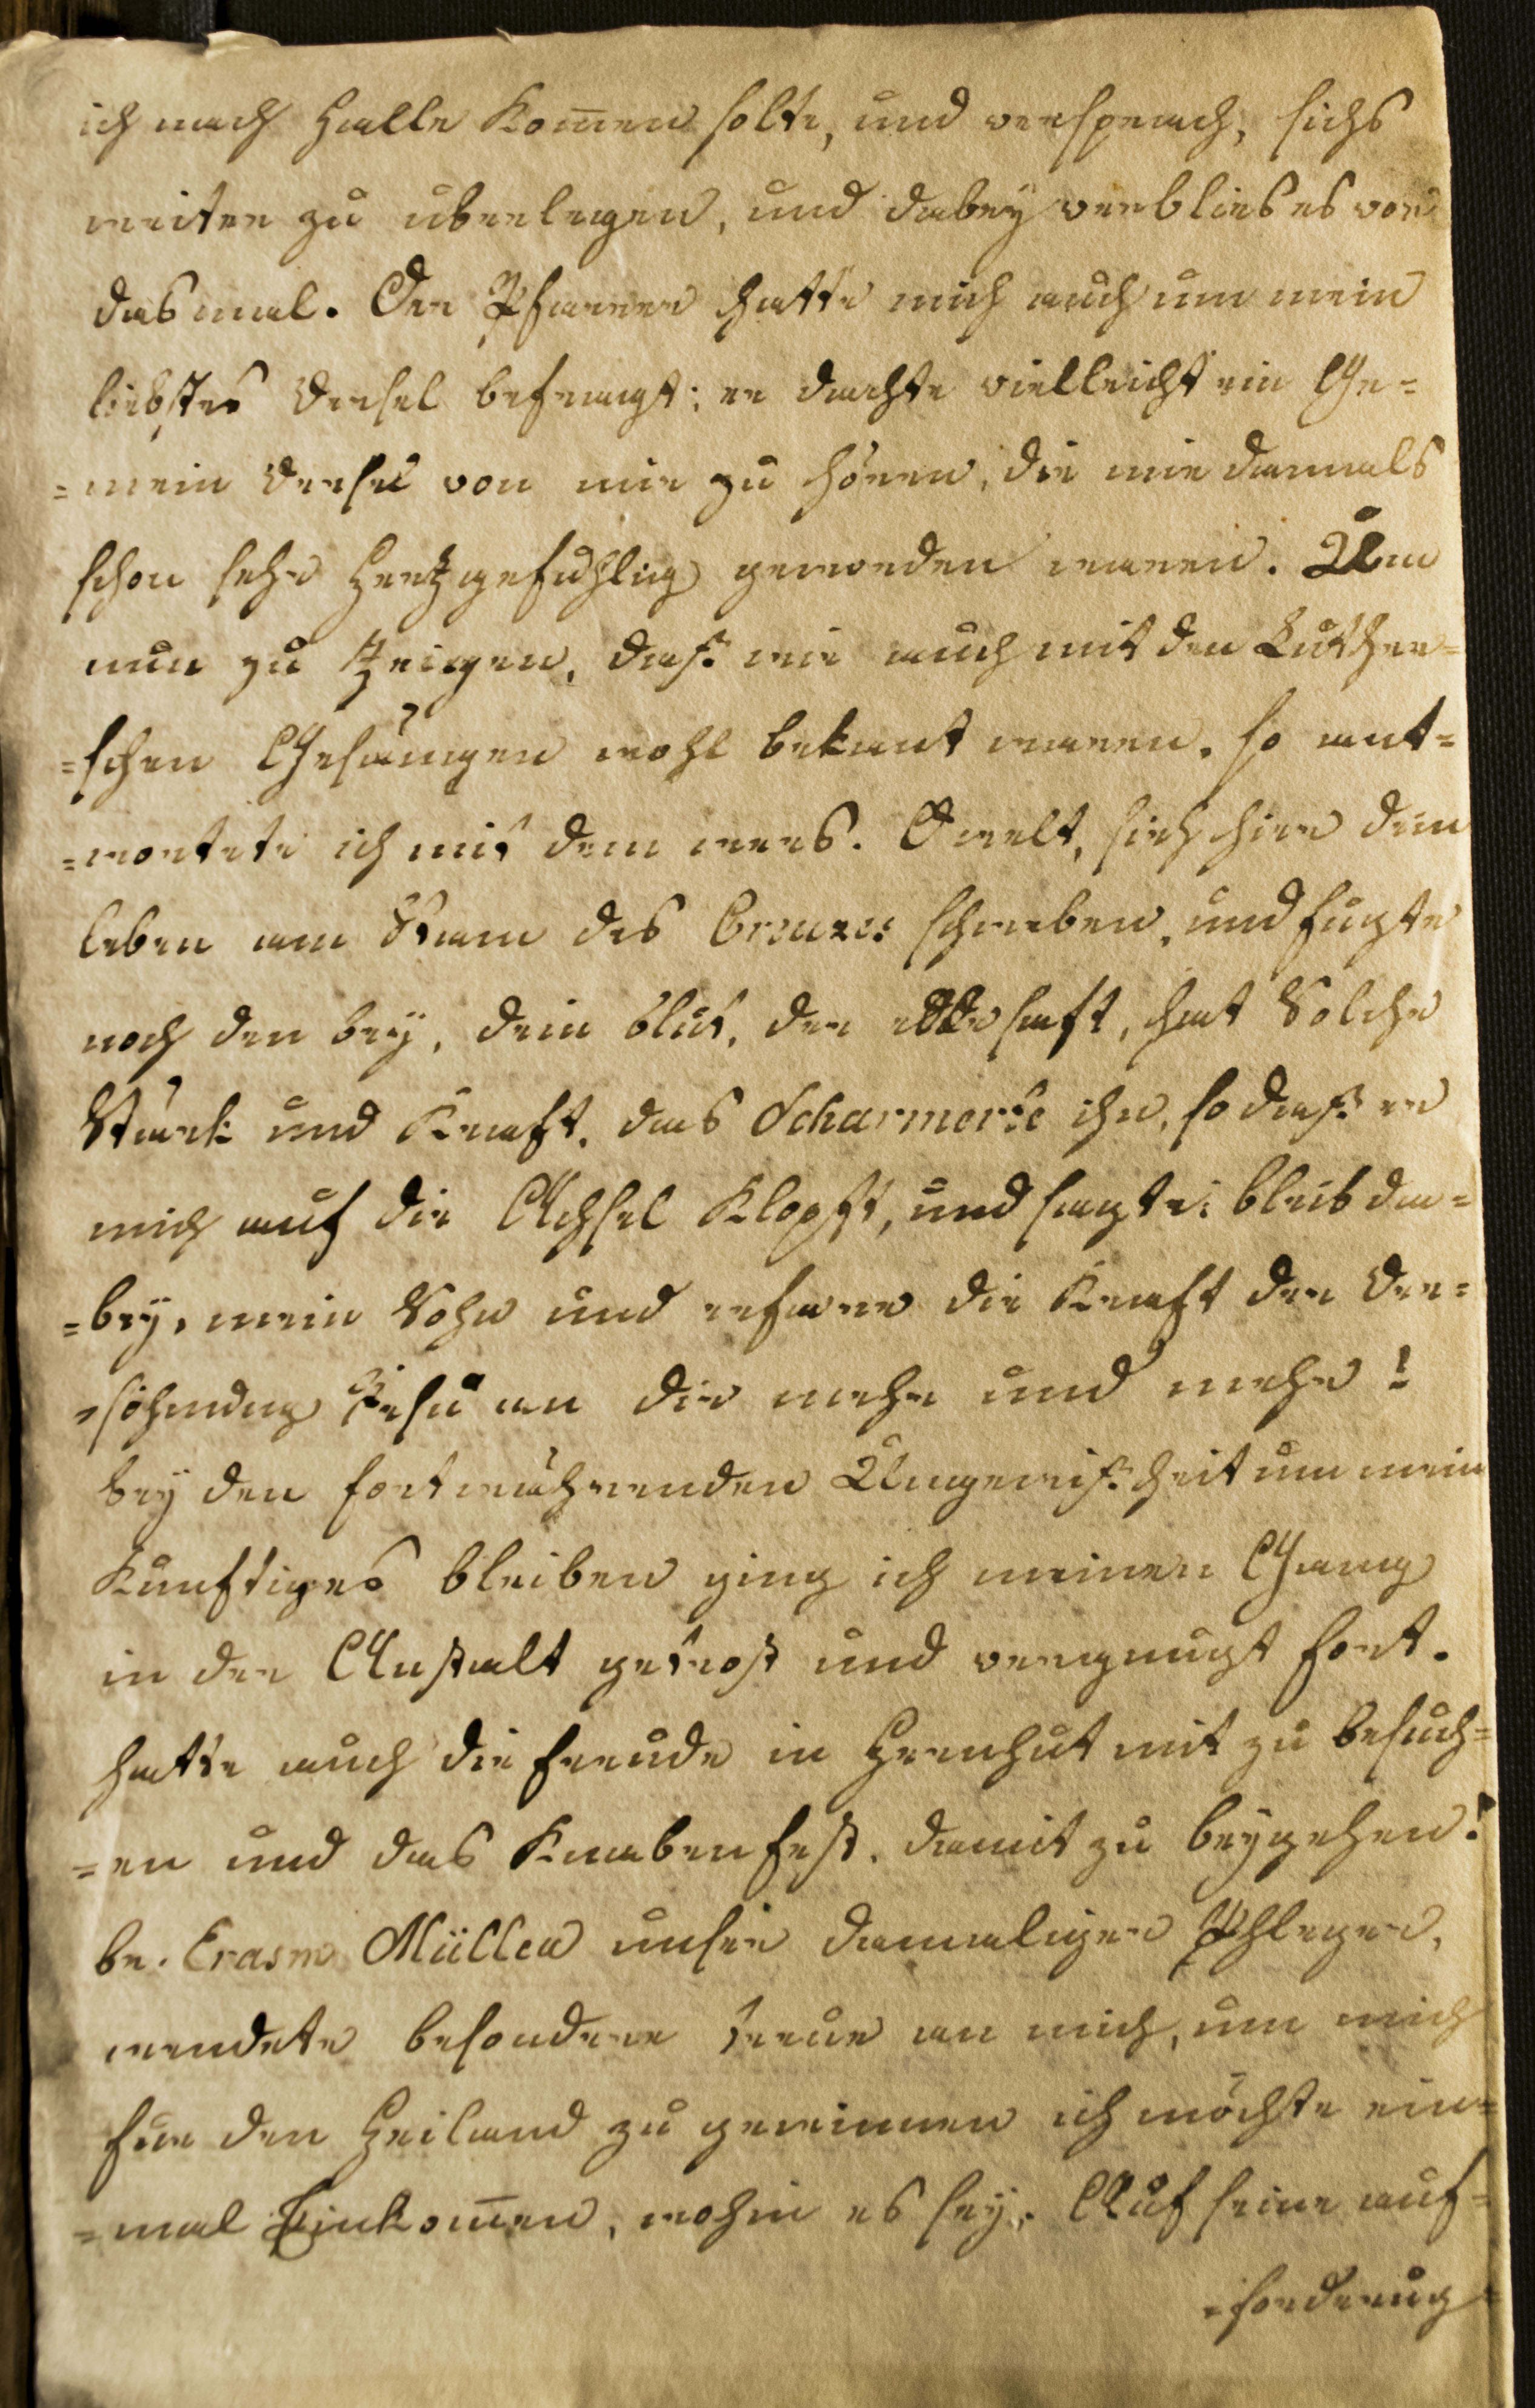 ich nach Halle kom̅en solte, und versprach, sichs
weiter zu uberlegen, und dabeÿ verblieb es vor
das mal. Der Pfarrer hatte mich auch um mein
liebstes Versel befragt; er dachte vielleicht ein Ge=
=mein Versel von mir zu hören, die mir damals
schon sehr Hertzgefuhlig geworden waren. Um
nun zu Zeigen, daß wir auch mit den Luther=
=schen Gesängen wohl bekant waren. so ant=
=wortete ich mit dem vers. O welt, sieh hier dein
leben am Stam des Creuzes schweben, und fugte
noch den beÿ, dein blut, der edle saft, hat Solche
Stärk und Kraft, das Scharmerte ihn, so daß er
mich auf die Achsel Klopft, und sagte: bleib da=
=beÿ, mein Sohn und erfare die Kraft der Ver=
=söhnung Jesu an dir mehr und mehr!
beÿ der fortwährenden Ungewißheit um mein
Kunftiges bleiben ging ich meinen Gang
in der Anstalt getrost und vergnugt fort.
hatte auch die freude in Herrnhut mit zu besuch=
=en und das Knabenfest. damit zu beÿgehen!
br. Erasm Müller unser damaliger Phleger,
wendete besondere treue an mich, um mich
fur den Heiland zu gewinnen ich möchte ein=
=mal Hinkom̅en, wohin es seÿ. Auf seine auf=
=forderung